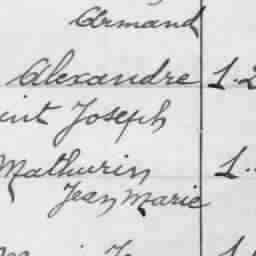 Armand
Alexandre 1.2
int Joseph
Mathurin 1.
Jean Marie